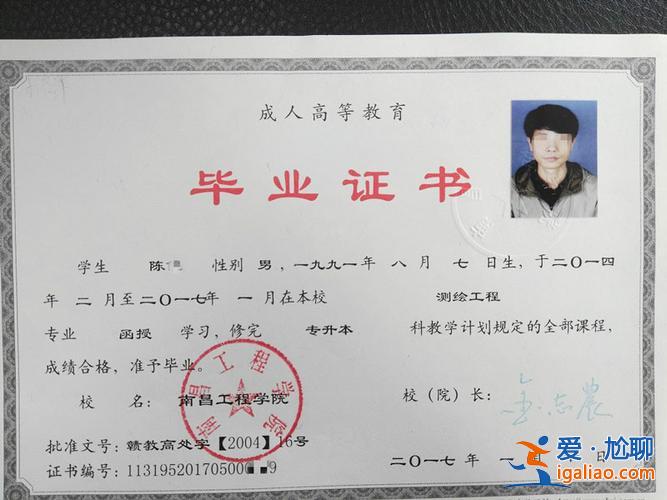 成人高等教育
毕业证书
学生 陈 性别 男，一九九一年 八 月 七 日生，于二〇一四
年 二 月至二〇一七年 一 月在本校 测绘工程
专业 函授 学习，修完 专升本 科教学计划规定的全部课程，
成绩合格，准予毕业。
校 名： 南昌工程学院
南昌工程学院
校（院）长：
金志农
批准文号：赣教高处字【2004】16号
证书编号：113195201705009
二〇一七年 一 月 日
爱·尬聊
igaliao.com